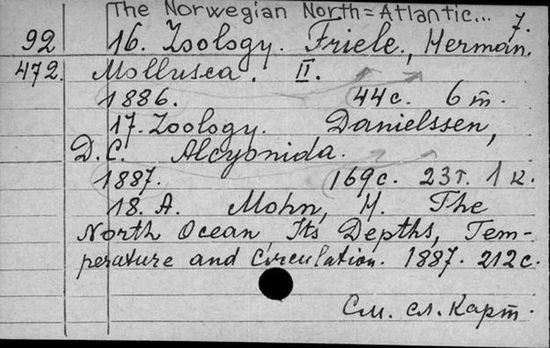 The Norwegian North=Atlantic... 7.
92 16. Zoology. Friele, Herman.
472. Mollusca. II.
1886. 44с. 6 т.
17. Zoology. Danielssen,
D.C. Alcyonida.
1887. 169с. 23т. 1 к.
18. A. Mohn, H. The
North Ocean, Its Depths, Tem-
perature and Circulation. 1887. 212с.
См. сл. карт.